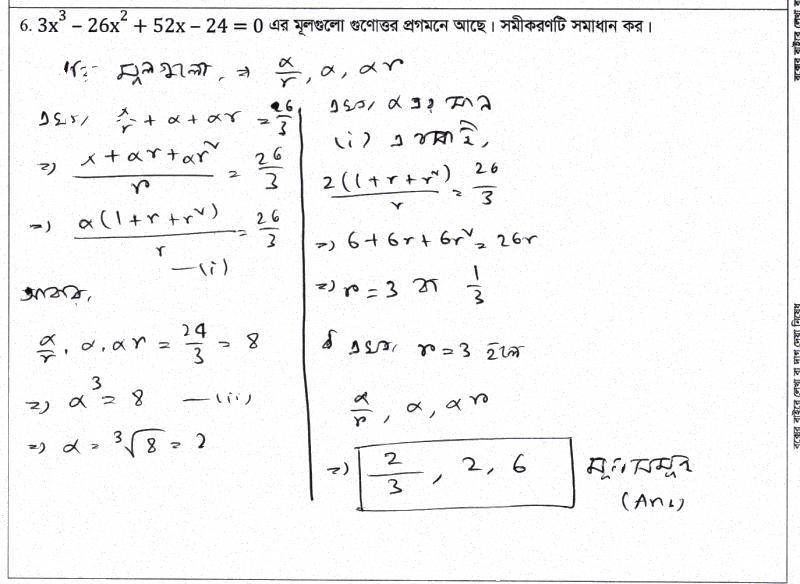 6. 3x³ − 26x² + 52x − 24 = 0 এর মূলগুলো গুণোত্তর প্রগমনে আছে। সমীকরণটি সমাধান কর।
মূলগুলো, ⇒ α/r, α, αr
এখন, α/r + α + αr = 26/3
⇒) (α + αr + αr²)/r = 26/3
⇒) α(1 + r + r²)/r = 26/3
—(i)
আবার,
α/r . α . αr = 24/3 = 8
⇒) α³ = 8 —(ii)
⇒) α = ³√8 = 2
এখন, α এর মান
(i) এ বসাই,
2(1 + r + r²)/r = 26/3
⇒) 6 + 6r + 6r² = 26r
⇒) r = 3 বা 1/3
এখন, r = 3 হলে
α/r, α, αr
⇒) 2/3, 2, 6 মূলসমূহ
(Ans)
বক্সের বাইরে লেখা বা দাগ দেয়া নিষেধ